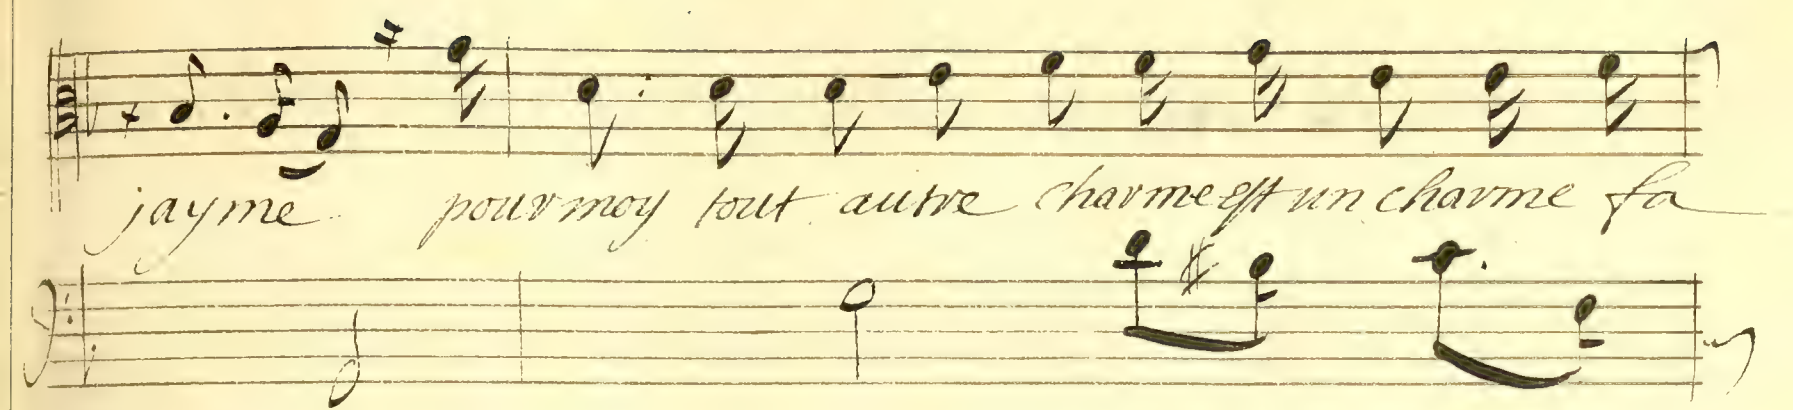 jayme pour moy tout autre charme est un charme fa